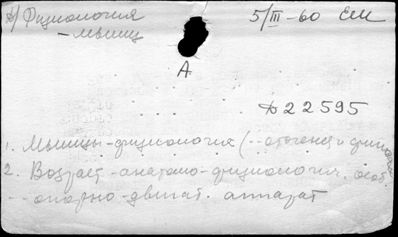 А/ Физиология 5/III-60 ЕМ
- мышц
А
Д22595
1. Мышцы-физиология (--онтогенез и
2. Возраст-анатомо-физиологич. особ.
-- опорно-двигат. аппарат